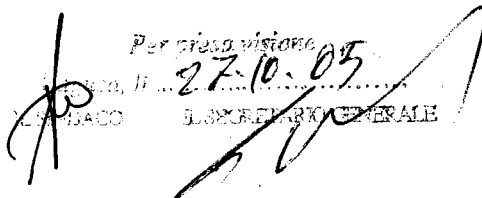 Per presa visione
li 27.10.05
IL SINDACO IL SEGRETARIO GENERALE